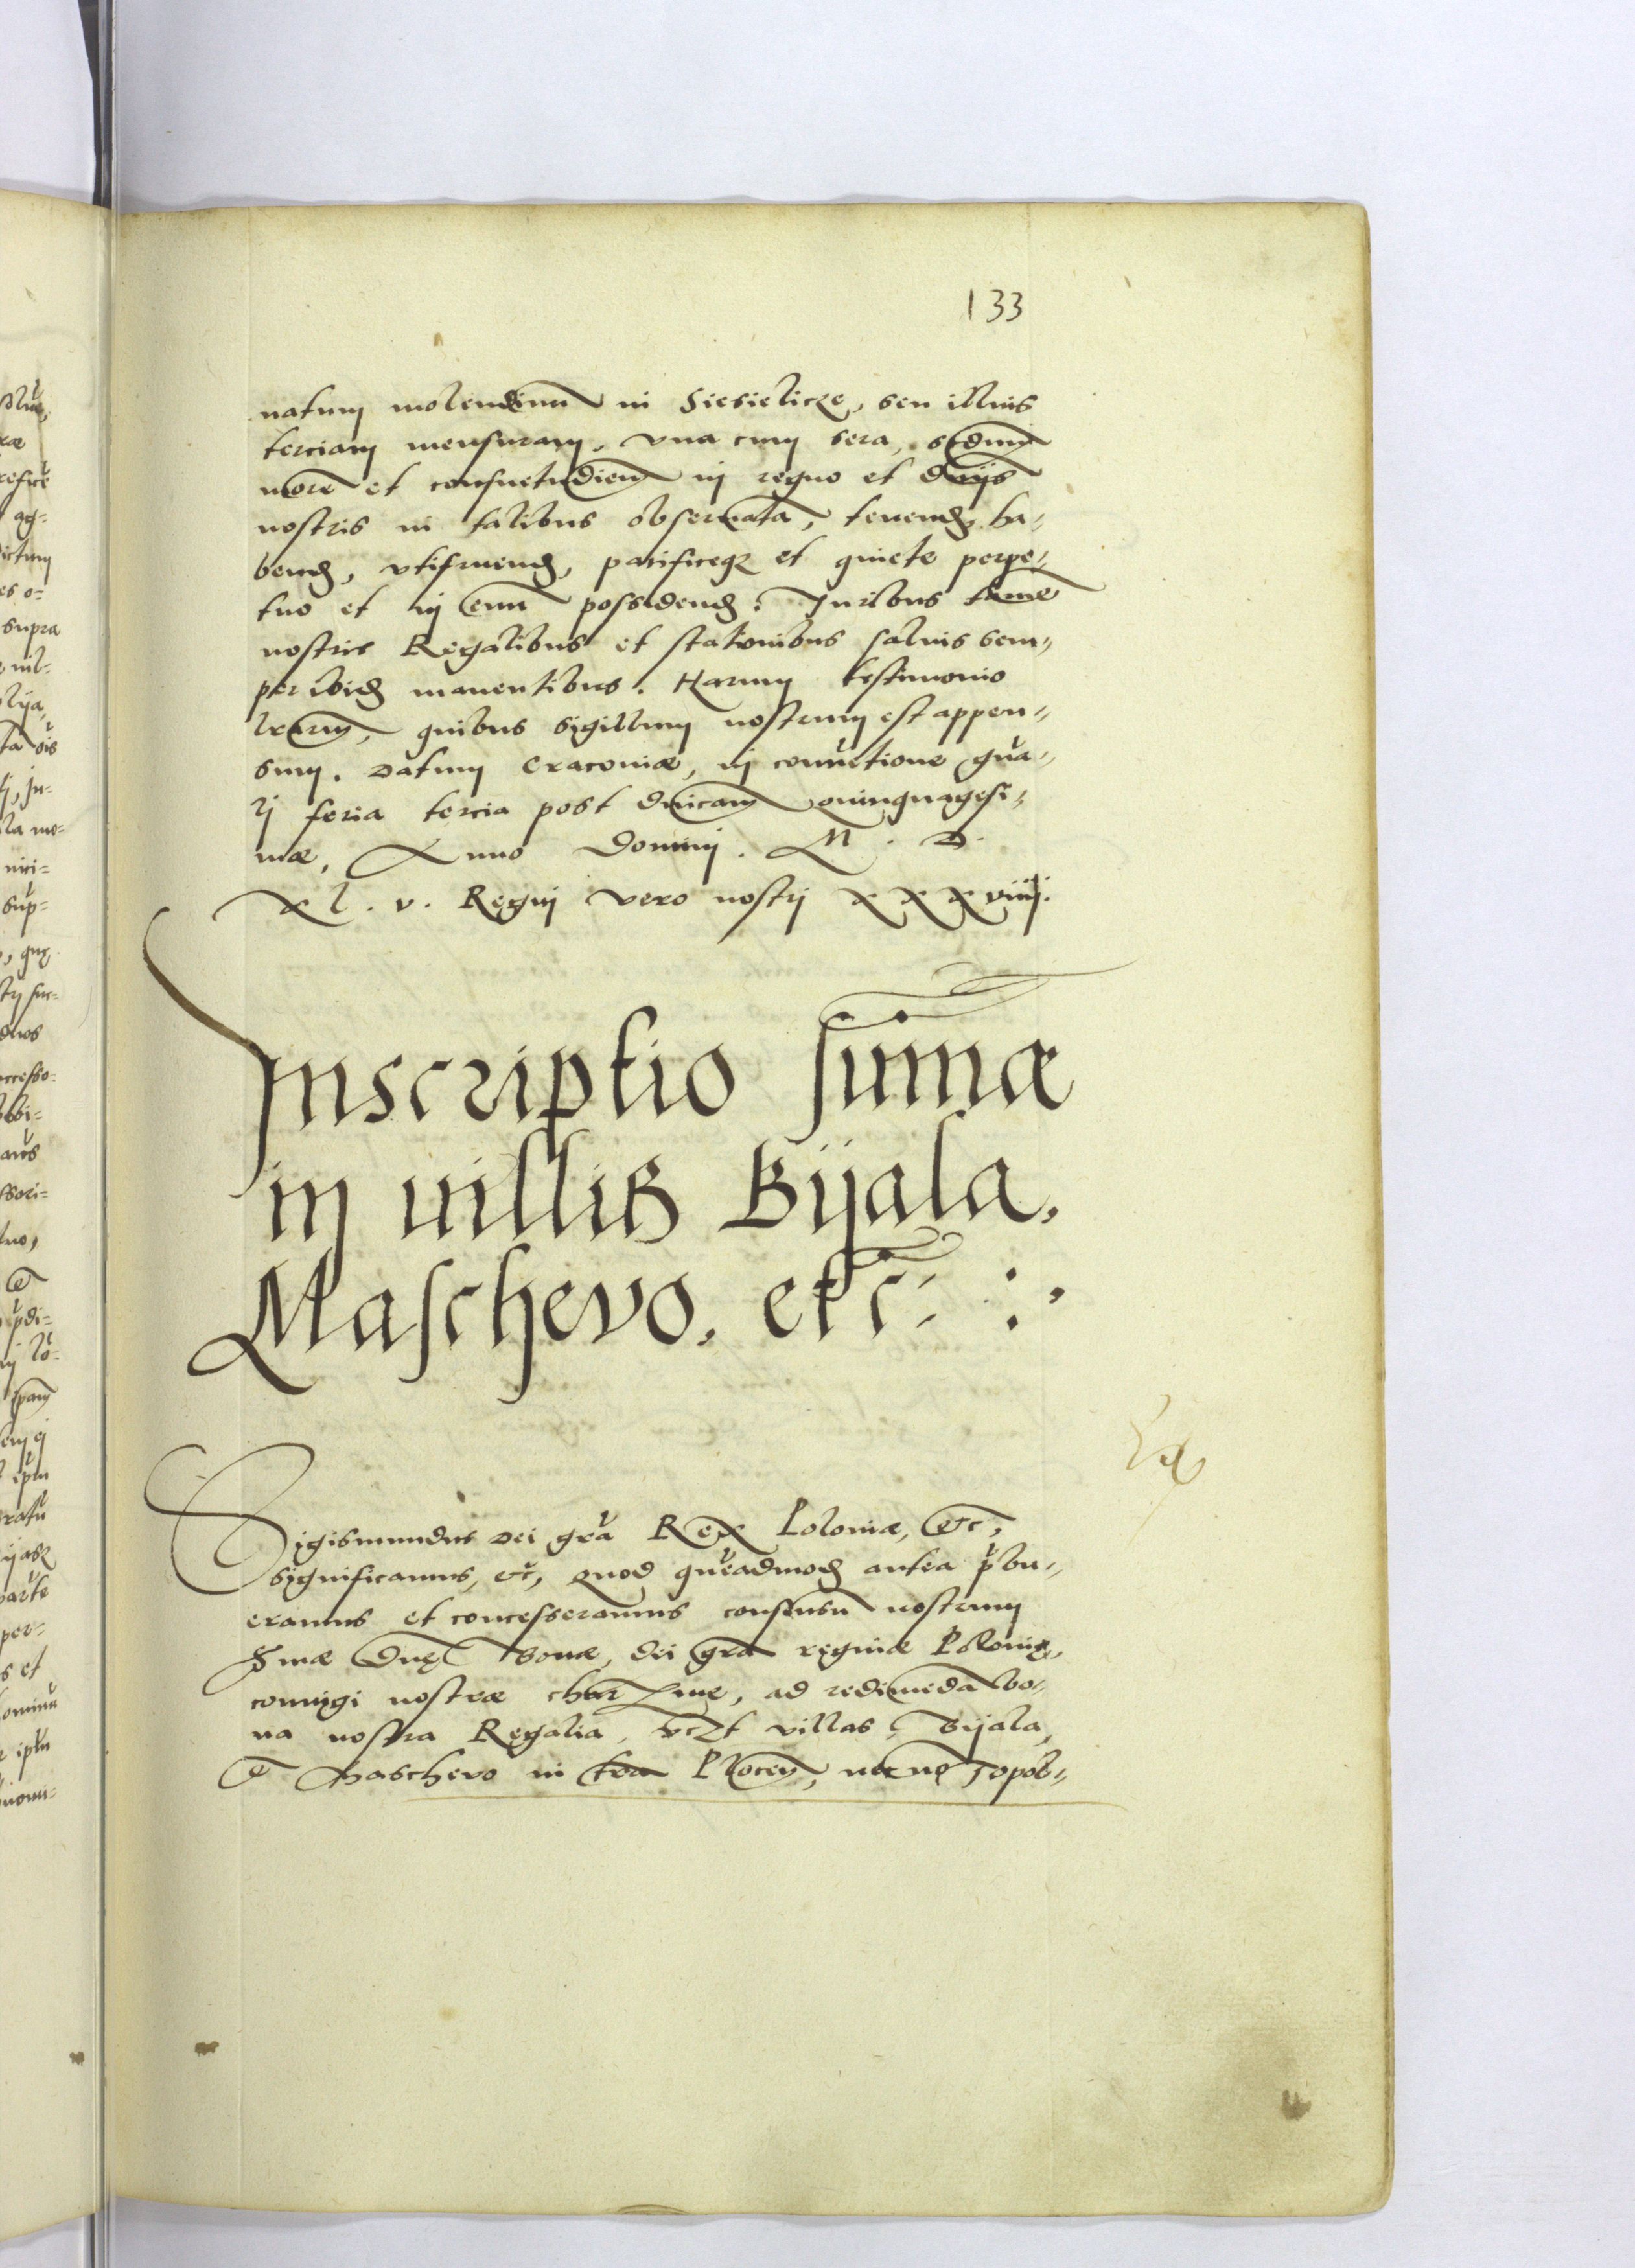 133
natum molendinũ in Siesielicze, seu illius
terciam mensuram, vna cum sera, scdum
morẽ et consuetudiem in regno et dnijs
nostris in talibus obseruatã, tenend, ha=
bend, vtifruend, pacificeqz et quiete perpe=
tuo et in euũ possidend: Iuribus tamẽ
nostris Regalibus et stationibus saluis sem=
per ibid manentibus. Harum testimonio
lrarum, quibus sigillum nostrum est appen=
sum. Datum Cracoviæ, in conuẽtione gña=
li feria tercia post dnicam Quinquagesi=
mæ, Anno Domini. M. D.
xl. v. Regni vero nostri xxxviiij.
Inscriptio sum̃æ
in uillis Bijala,
Maschevo, etc:
Sigismundus Dei gr̃a Rex Poloniæ, etc,
significamus, etc, Quod quẽadmod antea p̃bu=
eramus et concesseramus consensũ nostrum
Smæ Dnę Bonæ, dei gr̃a reginæ Polonię,
coniugi nostræ char me, ad redimẽda bo=
na nostra Regalia, vczt villas, Bijala,
et Maschevo in tr̃a Plocen, necnõ Topol=